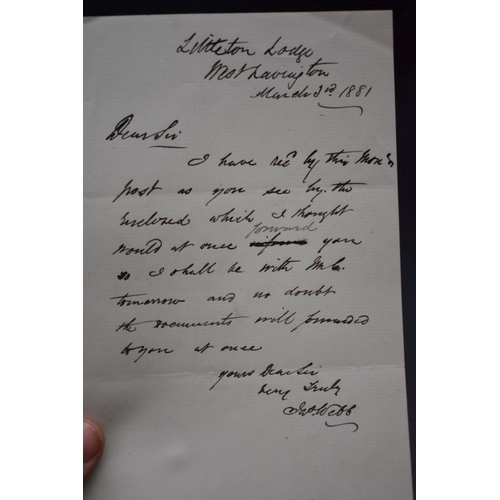 Littleton Lodge
West Lavington
March 3rd 1881
Dear Sir
I have recd by this Morn's
post as you see by the
enclosed which I thought
would at once forward you
as I shall be with Mr C.
tomorrow and no doubt
the documents will forwarded
to you at once
yours Dear Sir
very Truly
Jno Webb